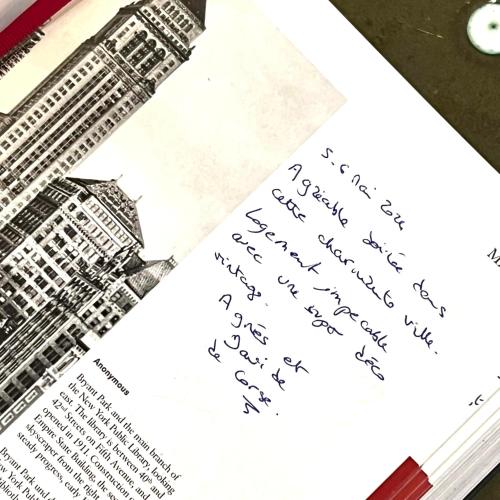 5.6 Mai 2024
Agréable soirée dans
cette charmante ville.
Logement impecable
avec une super déco
vintage.
Agnès et
de Corse.
M
Anonymous
Bryant Park and the main branch of
the New York Public Library, looking
east. The library is between 40th and
42nd Streets on Fifth Avenue, and
opened in 1911. Construction
Empire State Building, the
skyscraper from the
steady progress, early
Bryant Park und
New York Public